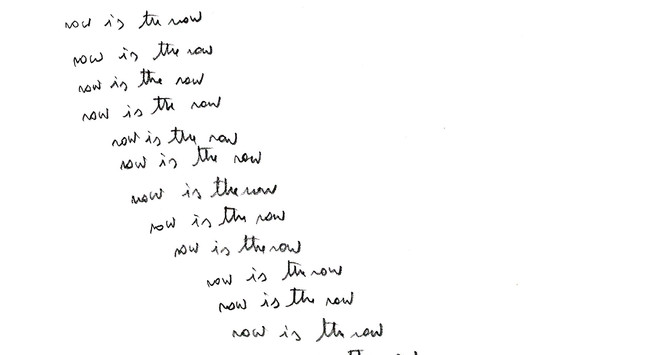 now is the now
now is the now
now is the now
now is the now
now is the now
now is the now
now is the now
now is the now
now is the now
now is the now
now is the now
now is the now